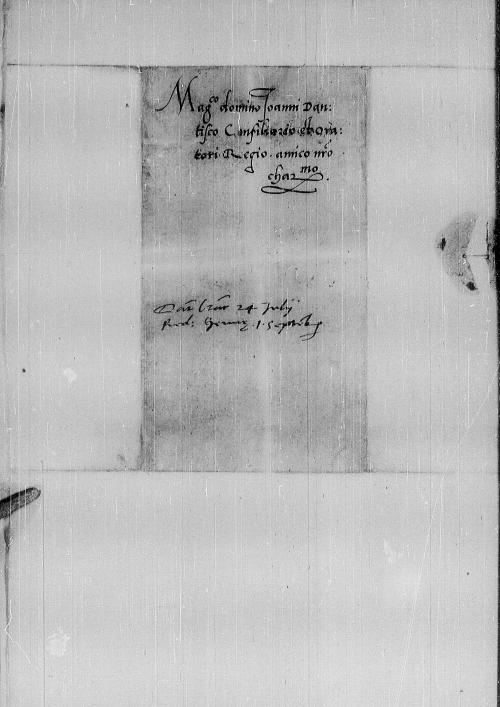 Mag^co domino Joanni Dan:
tisco Consiliario et Ora:
tori Regio amico nro
char^mo.
Dat 24 Julij
Red: 1 Septebr